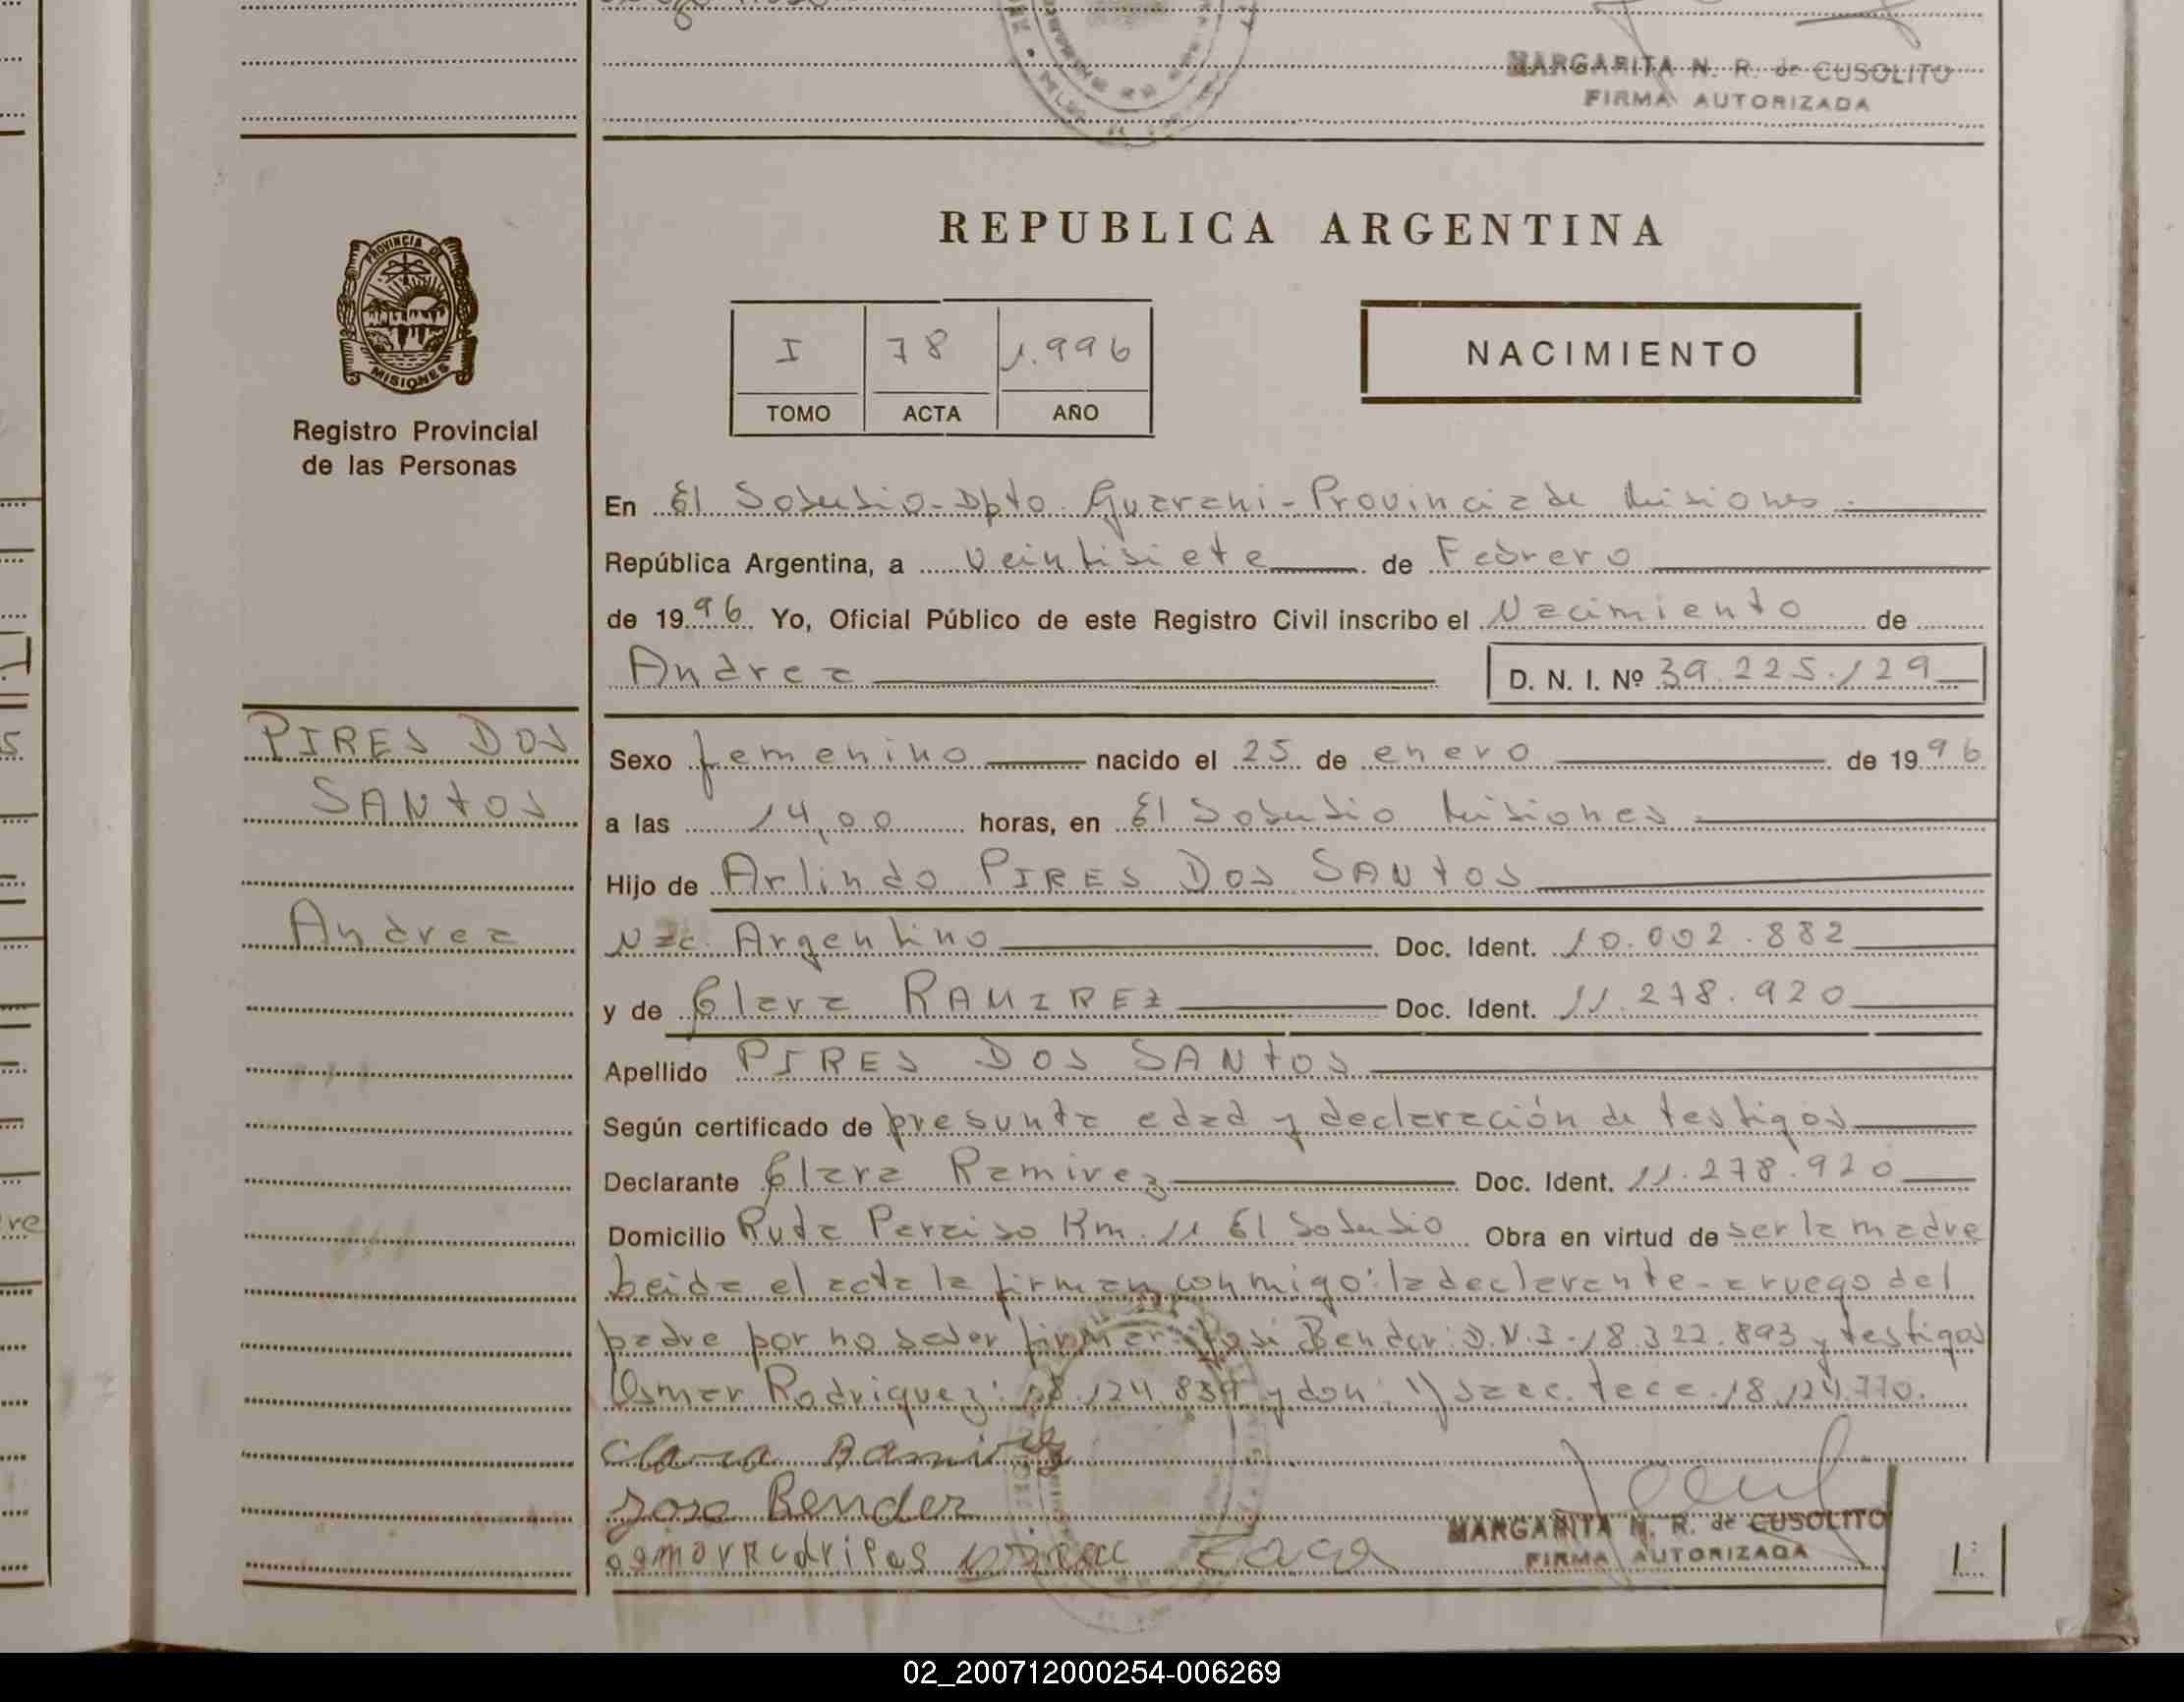 MARGARITA N. R. de CUSOLITO
FIRMA AUTORIZADA
PROVINCIA DE
MISIONES
Registro Provincial
de las Personas
REPUBLICA ARGENTINA
I 78 1.996
TOMO ACTA AÑO
NACIMIENTO
En El Soberbio - Dpto. Guarani - Provincia de Misiones
República Argentina, a veintisiete de Febrero
de 1996 Yo, Oficial Público de este Registro Civil inscribo el Nacimiento de
Andrea D. N. I. Nº 39.225.129
PIRES DOS
SANTOS
Andrea
Sexo femenino nacido el 25 de enero de 1996
a las 14,00 horas, en El Soberbio Misiones
Hijo de Arlindo PIRES DOS SANTOS
Nac. Argentino Doc. Ident. 10.002.882
y de Clara RAMIREZ Doc. Ident. 11.278.920
Apellido PIRES DOS SANTOS
Según certificado de presunta edad y declaración de testigos
Declarante Clara Ramirez Doc. Ident. 11.278.920
Domicilio Ruta Paraiso Km. 11 El Soberbio Obra en virtud de ser la madre
Leida el acta la firman conmigo: la declarante - a ruego del
padre por no saber firmar: José Bender: D.N.I. 18.322.893 y testigos
Osmar Rodriguez: 18.124.839 y don: Ysaac. 18.124.770.
Clara Ramirez
Jose Bender
MARGARITA N. R. de CUSOLITO
FIRMA AUTORIZADA
02_200712000254-006269